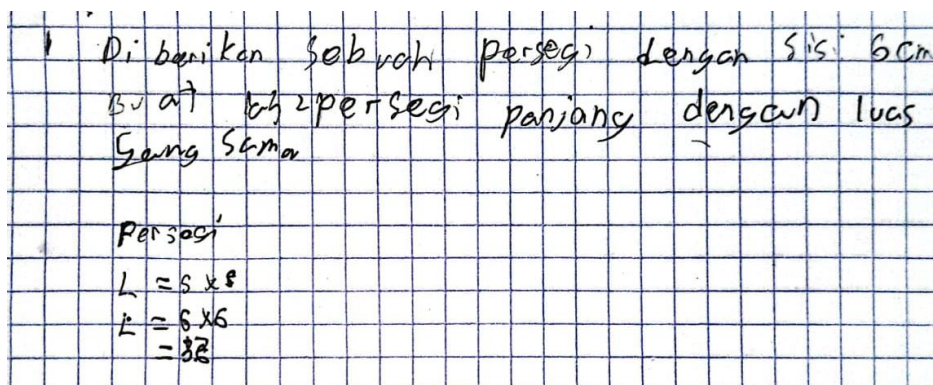 1 Di berikan sebuah persegi dengan sisi 6cm
Buat lah 2 persegi panjang dengan luas
Yang sama
Persegi
L = s x s
L = 6 x 6
= 36